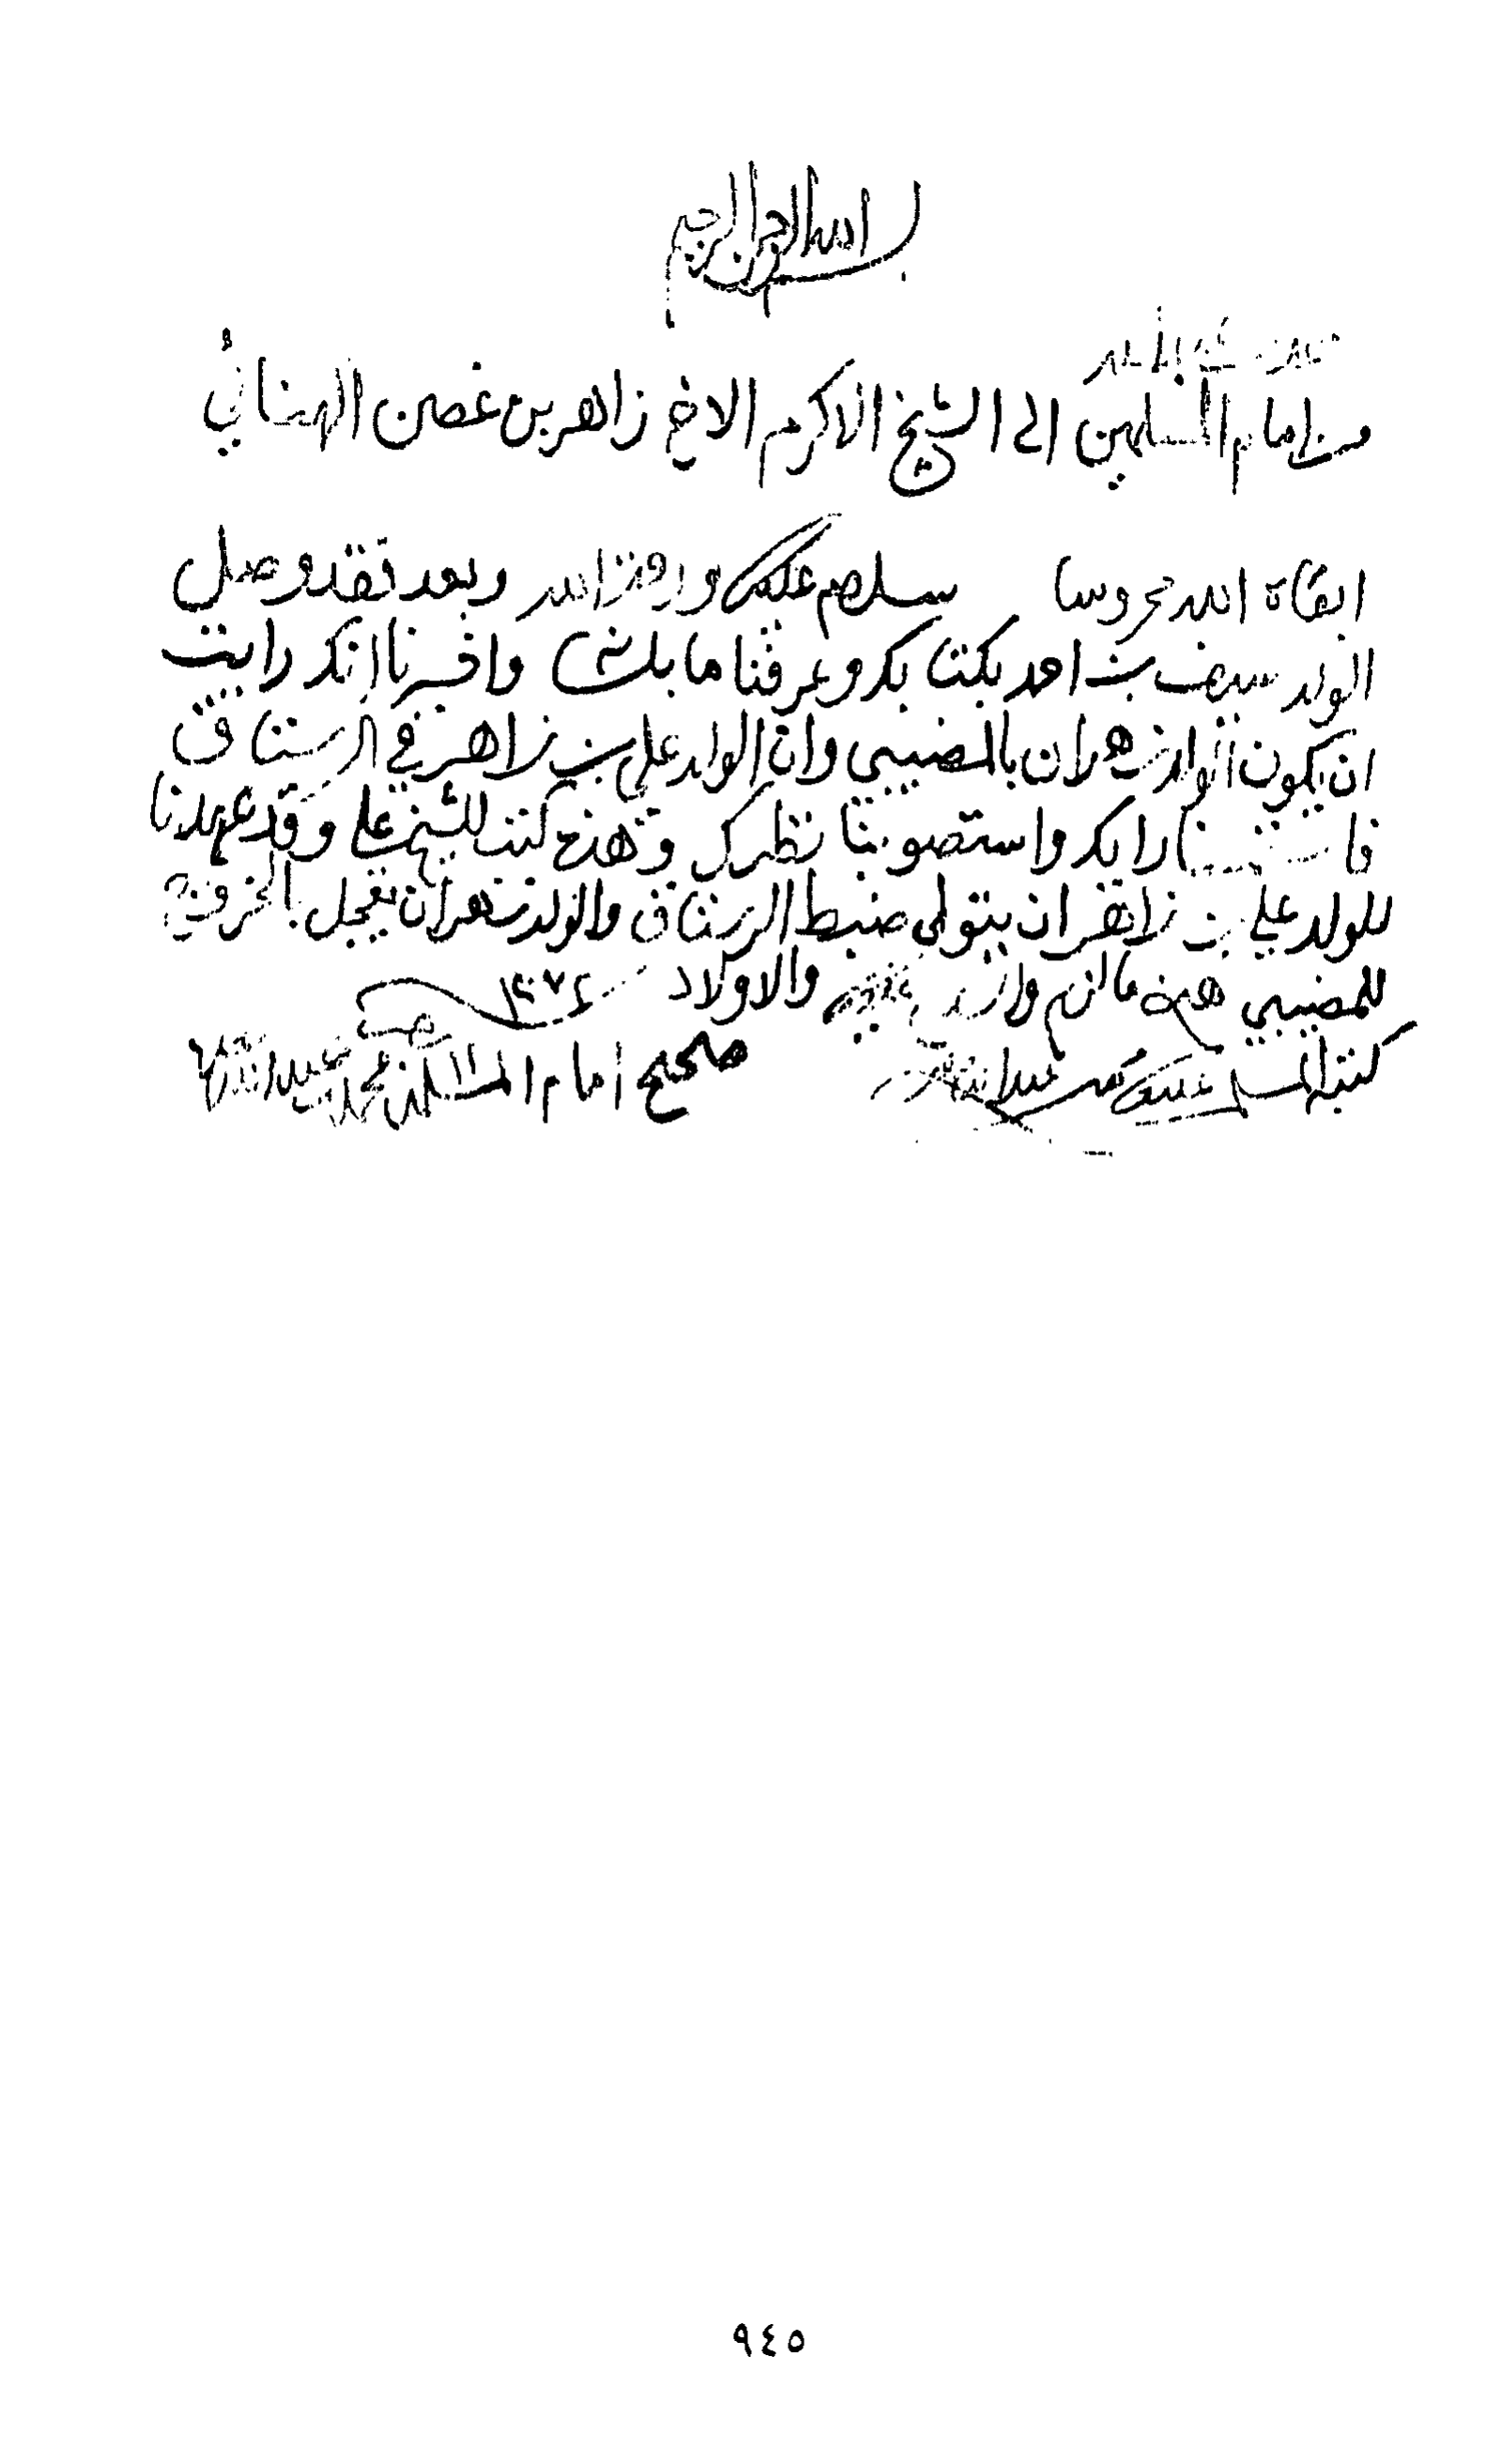 بسم الله الرحمن الرحيم
من امام المسلمين الى الشيخ الاكرم الاخ زاهر بن غصن الهنائي
ابقاه الله محروسا سلام عليكم ورحمة الله وبعد فقد وصل
الولد سيف بن احمد بكتابكم وعرفنا ما بلسان واخبرنا انكم رايت
ان يكون الولد زهران بالمضيبي وان الولد علي بن زاهر في الرستاق
رايكم واستصوبنا نظركم وهذه كتب للشيخ علي وقد عهدنا
للولد علي بن زاهر ان يتولى ضبط الرستاق والولد زهران يعجل بالخروج
للمضيبي هذه ما لزم والاولاد ١٣٧٤
كتبه عبدالله
صحيح امام المسلمين محمد بن عبدالله
٩٤٥